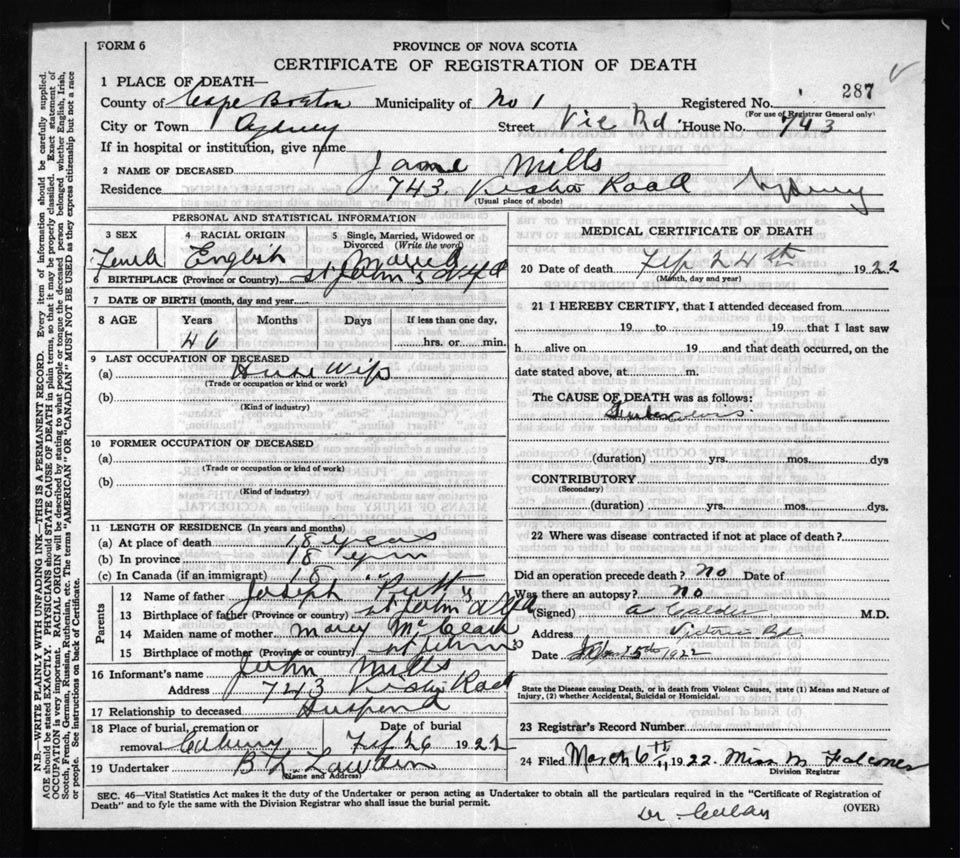 FORM 6
PROVINCE OF NOVA SCOTIA
CERTIFICATE OF REGISTRATION OF DEATH
287
1 PLACE OF DEATH—
County of Cape Breton Municipality of No 1 Registered No.
(For use of Registrar General only)
City or Town Sydney Street Vic Rd House No. 743
If in hospital or institution, give name
2 NAME OF DECEASED Jane Mills
Residence 743 Road Sydney
(Usual place of abode)
PERSONAL AND STATISTICAL INFORMATION
3 SEX 4 RACIAL ORIGIN 5 Single, Married, Widowed or Divorced (Write the word)
English
6 BIRTHPLACE (Province or Country) St John's Nfld
7 DATE OF BIRTH (month, day and year)
8 AGE Years Months Days If less than one day,
46 hrs. or min.
9 LAST OCCUPATION OF DECEASED
(a) House Wife
(Trade or occupation or kind or work)
(b)
(Kind of industry)
10 FORMER OCCUPATION OF DECEASED
(a)
(Trade or occupation or kind of work)
(b)
(Kind of industry)
11 LENGTH OF RESIDENCE (In years and months)
(a) At place of death 18 years
(b) In province 18 years
(c) In Canada (if an immigrant) 18 "
Parents
12 Name of father Joseph
13 Birthplace of father (Province or country) St John Nfld
14 Maiden name of mother
15 Birthplace of mother (Province or country) St Johns
16 Informant's name John Mills
Address 743
17 Relationship to deceased
18 Place of burial, cremation or removal Date of burial Feb 26 1922
19 Undertaker
(Name and Address)
MEDICAL CERTIFICATE OF DEATH
20 Date of death 24th 1922
(Month, day and year)
21 I HEREBY CERTIFY, that I attended deceased from
19 to 19 that I last saw
h alive on 19 and that death occurred, on the
date stated above, at m.
The CAUSE OF DEATH was as follows:
(duration) yrs. mos. dys
CONTRIBUTORY
(Secondary)
(duration) yrs. mos. dys.
22 Where was disease contracted if not at place of death?
Did an operation precede death? No Date of
Was there an autopsy? No
(Signed) A Calder M.D.
Address Victoria Rd.
Date 1922
State the Disease causing Death, or in death from Violent Causes, state (1) Means and Nature of
Injury, (2) whether Accidental, Suicidal or Homicidal.
23 Registrar's Record Number
24 Filed March 6th 1922. Miss M
Division Registrar
SEC. 46—Vital Statistics Act makes it the duty of the Undertaker or person acting as Undertaker to obtain all the particulars required in the "Certificate of Registration of
Death" and to fyle the same with the Division Registrar who shall issue the burial permit. (OVER)
Dr.
N.B.—WRITE PLAINLY WITH UNFADING INK—THIS IS A PERMANENT RECORD. Every item of information should be carefully supplied.
AGE should be stated EXACTLY. PHYSICIANS should STATE CAUSE OF DEATH in plain terms, so that it may be properly classified. Exact statement of
OCCUPATION is very important. RACIAL ORIGIN will be described by stating to what people or tongue the deceased person belonged whether English, Irish,
Scotch, French, German, Russian, Ruthenian, etc. The terms "AMERICAN" OR "CANADIAN" MUST NOT BE USED as they express citizenship but not a race
or people. See instructions on back of Certificate.